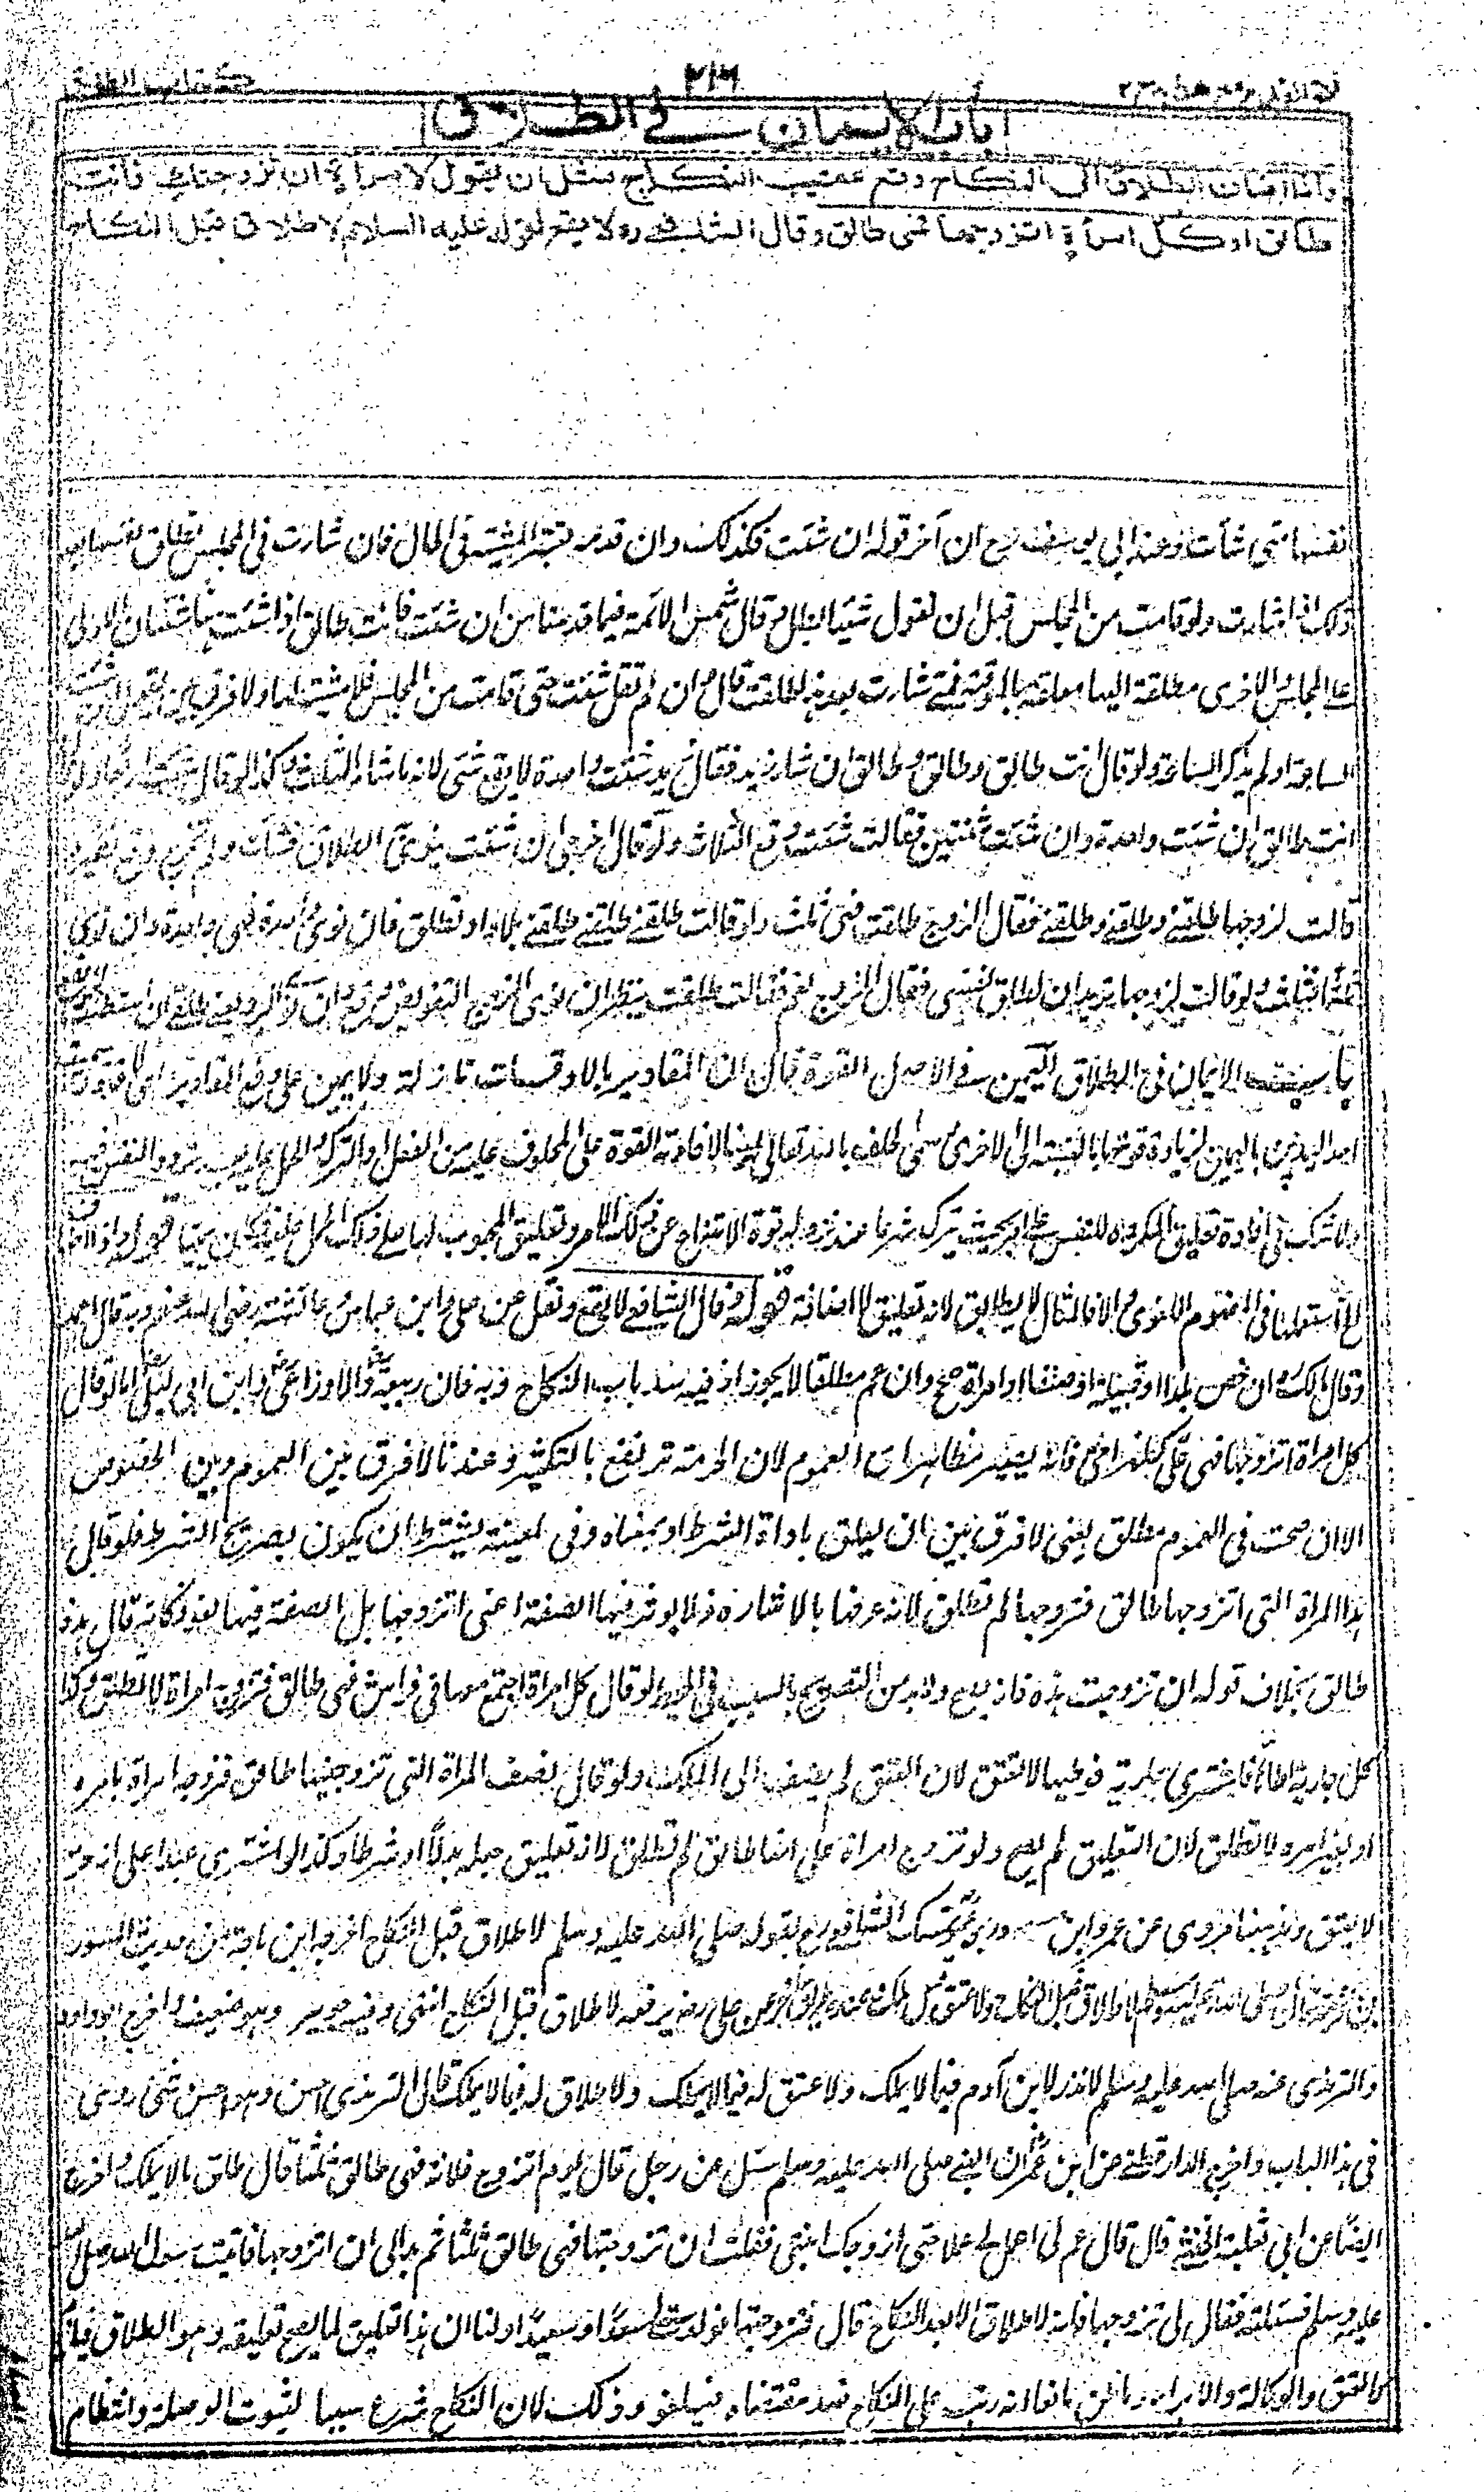 كتاب الطلاق
باب الايمان في الطلاق
واذا اضاف الطلاق الى النكاح وقع عقيب النكاح مثل ان يقول لامرأة ان تزوجتك فانت
طالق او كل امرأة اتزوجها فهي طالق وقال الشافعي رح لا يقع لقوله عليه السلام لا طلاق قبل النكاح
نفسها متى شأت وعند ابي يوسف رح ان آخر قوله ان شئت فكذلك وان قدمه تعتبر المشيئة في الحال فان شاءت في المجلس تطلق نفسها بعد
ذلك اذا شاءت ولو قامت من المجلس قبل ان تقول شيئا بطل وقال شمس الائمة فيما قدمنا من ان شئت فانت طالق اذا شئت مشيئتان الاولى
على المجلس والاخرى مطلقة اليها معلقة بالموقتة فمتى شاءت بعد هذا طلقت قال ان لم تقل شئت حتى قامت من المجلس فلا مشيئة لها ولا فرق بين
الساعة او لم يذكر الساعة ولو قال انت طالق وطالق وطالق ان شاء زيد فقال زيد شئت واحدة لا يقع شئ لانه ما شاء الثلث وكذا لو قال
انت طالق ان شئت واحدة وان شئت ثنتين فقالت شئت وقع الثلاث ولو قال اخرجي ان شئت ينوي الطلاق فشأت ولم تخرج وقع
قالت لزوجها طلقني وطلقني وطلقني فقال الزوج طلقت فهي ثلث ولو قالت طلقني طلقني طلقني بلا واو فطلق فان نوى واحدة فهي واحدة وان نوى
ثلثا فثلث ولو قالت لزوجها تريد ان اطلق نفسي فقال الزوج نعم فقالت طلقت ينظر ان نوى الزوج التفويض وقع وان
باب الايمان في الطلاق اليمين في الاصل القوة قال ان المقادير بالاوقات نازلة ولا يمين على دفع المقادير اى لا قوة
احد اليدين باليمين لزيادة قوتها بالنسبة الى الاخرى وسمي الحلف بالله تعالى يمينا لافادته القوة على المحلوف عليه من الفعل او الترك
ولا شك في افادة تعليق المكروه للنفس على امر بحيث ينزل شرعا عند نزوله قوة الامتناع عن ذلك الامر وتعليق المحبوب لها على ذلك الحمل عليه فكان يمينا قوله واذا اضاف
استعملها في المفهوم اللغوي والا فالمثال لا يطابق لانه تعليق لا اضافة قوله وقال الشافعي لا يقع ونقل عن علي وابن عباس وعائشة رضي الله عنهم وبه قال احمد
وقال مالك ان خص بلدا او قبيلة او صنفا او امرأة صح وان عم مطلقا لا يجوز اذ فيه سد باب النكاح وبه قال ربيعة والاوزاعي وابن ابي ليلى اما لو قال
كل امرأة اتزوجها فهي علي كظهر امي فانه يصير مظاهرا مع العموم لان الحرمة ترتفع بالتكفير وعندنا لا فرق بين العموم وبين الخصوص
الا ان صحته في العموم مطلق يعني لا فرق بين ان يعلق باداة الشرط او بمعناه وفي المعينة يشترط ان يكون بصريح الشرط فلو قال
هذه المرأة التي اتزوجها طالق فتزوجها لم تطلق لانه عرفها بالاشارة فلا يؤثر فيها الصفة اعني اتزوجها بل الصفة فيها لغو فكانه قال هذه
طالق بخلاف قوله ان تزوجت هذه فانه يصح ولا بد من التصريح بالسبب في المحيط لو قال كل امرأة اجتمع معها في فراش فهي طالق فتزوج امرأة لا تطلق وكذا
كل جارية اطأها فاشترى جارية فوطيها لا تعتق لان العتق لم يضف الى الملك ولو قال نصف المرأة التي تزوجنيها طالق فزوجه امرأة بامره
او بغير امره لا تطلق لان التعليق لم يصح ولو تزوج امرأة على انها طالق لم تطلق لانه تعليق جعله بدلا او شرطا وكذا لو اشترى عبدا على انه حر
لا يعتق ومذهبنا مروي عن عمر وابن تمسك الشافعي رح بقوله صلى الله عليه وسلم لا طلاق قبل النكاح اخرجه ابن ماجة من حديث المسور
بن مخرمة ان صلى الله عليه وسلم لا طلاق قبل النكاح ولا عتق قبل ملك عن علي يرفعه لا طلاق قبل النكاح انتهى وفيه جويبر وهو ضعيف واخرج ابو داود
والترمذي عنه صلى الله عليه وسلم لا نذر لابن آدم فيما لا يملك ولا عتق له فيما لا يملك ولا طلاق له فيما لا يملك قال الترمذي حسن وهو احسن شئ روي
في هذا الباب واخرج الدارقطني عن ابن عمر ان النبي صلى الله عليه وسلم سئل عن رجل قال يوم اتزوج فلانة فهي طالق ثلثا قال طلق مالا يملك واخرج
ايضا عن ابي ثعلبة الخشني قال قال عم لي اعمل لي عملا حتى ازوجك ابنتي فقلت ان تزوجتها فهي طالق ثلثا ثم بدا لي ان اتزوجها فاتيت رسول الله صلى الله
عليه وسلم فسئلته فقال لي تزوجها فانه لا طلاق الا بعد النكاح قال فتزوجتها فولدت لي سعدا وسعيدا ولنا ان هذا تعليق لما يصح تعليقه وهو الطلاق
كالعتق والوكالة والابراء وما ظن مانعا انه رتب على النكاح ضد مقتضاه فيلغو وذلك لان النكاح شرع سببا لثبوت الوصلة وانتظام